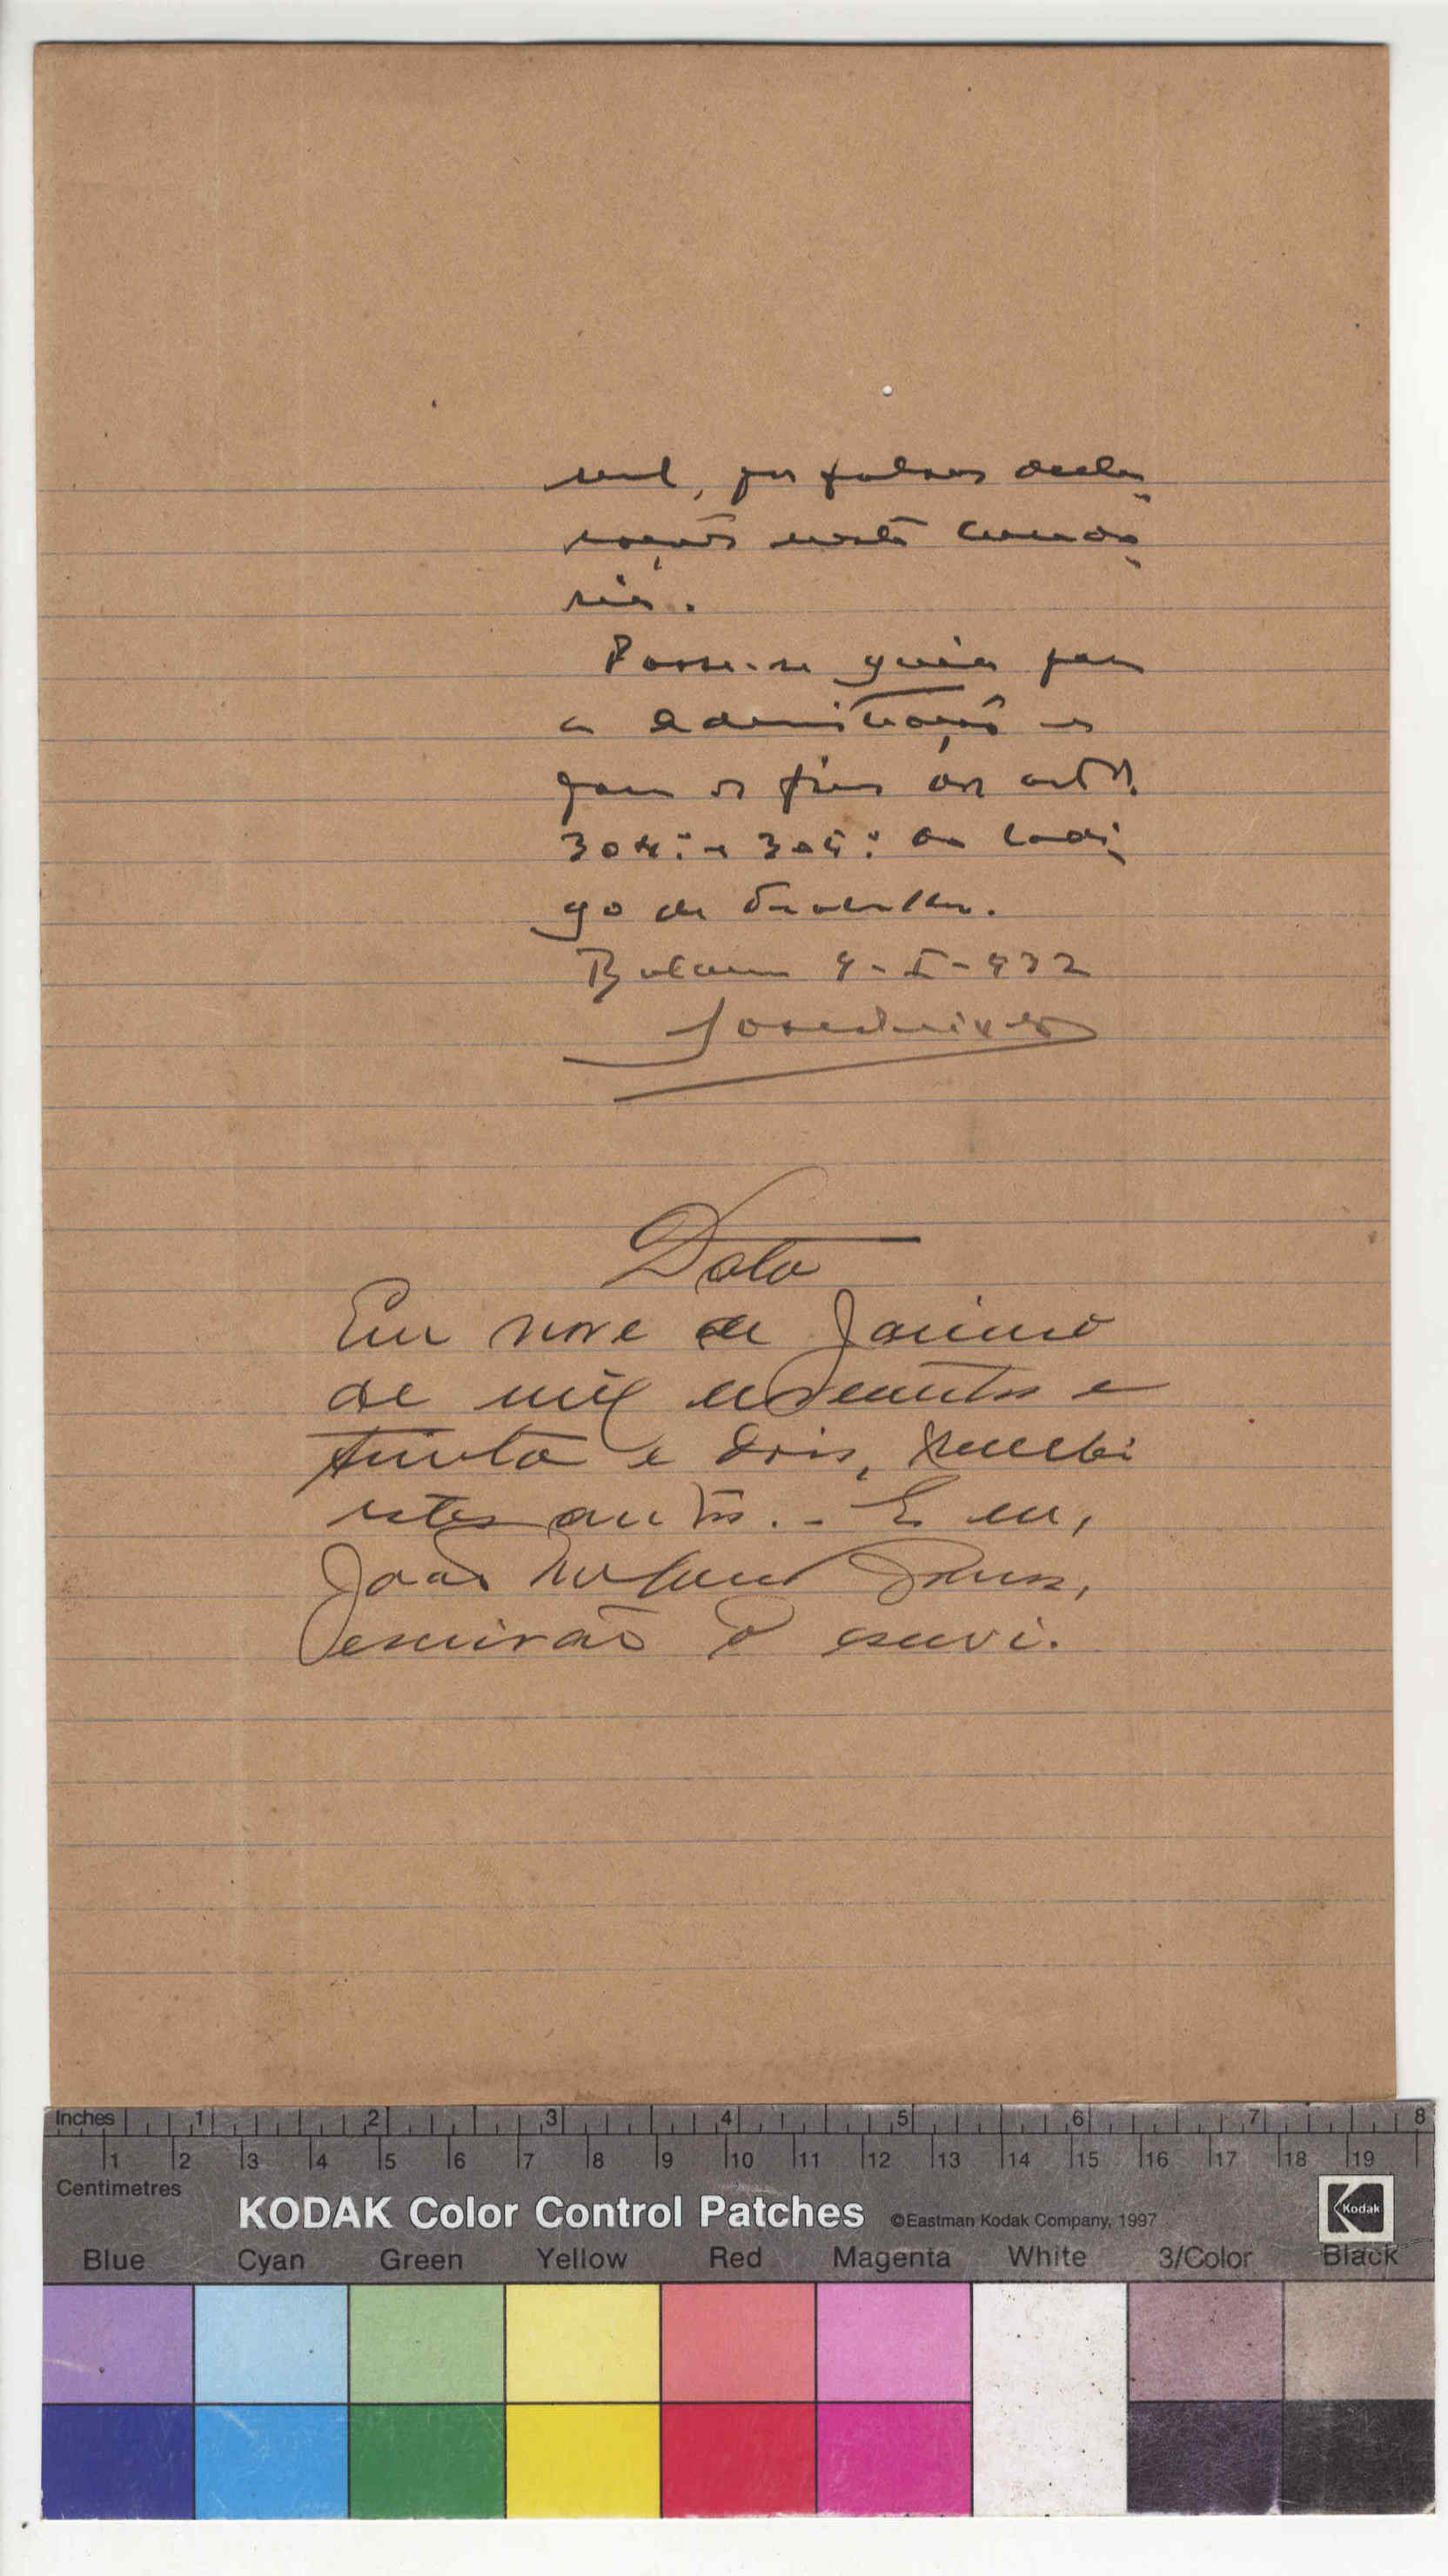 por falsas decla-
rações neste
ria.
Passe-se guia para
a administração e
para os fins dos artos.
304º e 305º do Codi-
go de
9-I-932
Data
Em nove de Janeiro
de mil novecentos e
trinta e dois, recebi
estes autos. - E eu,
João
escrivão o escrevi.
Inches 1 2 3 4 5 6 7 8
1 2 3 4 5 6 7 8 9 10 11 12 13 14 15 16 17 18 19
Centimetres
KODAK Color Control Patches ©Eastman Kodak Company, 1997 Kodak
Blue Cyan Green Yellow Red Magenta White 3/Color Black